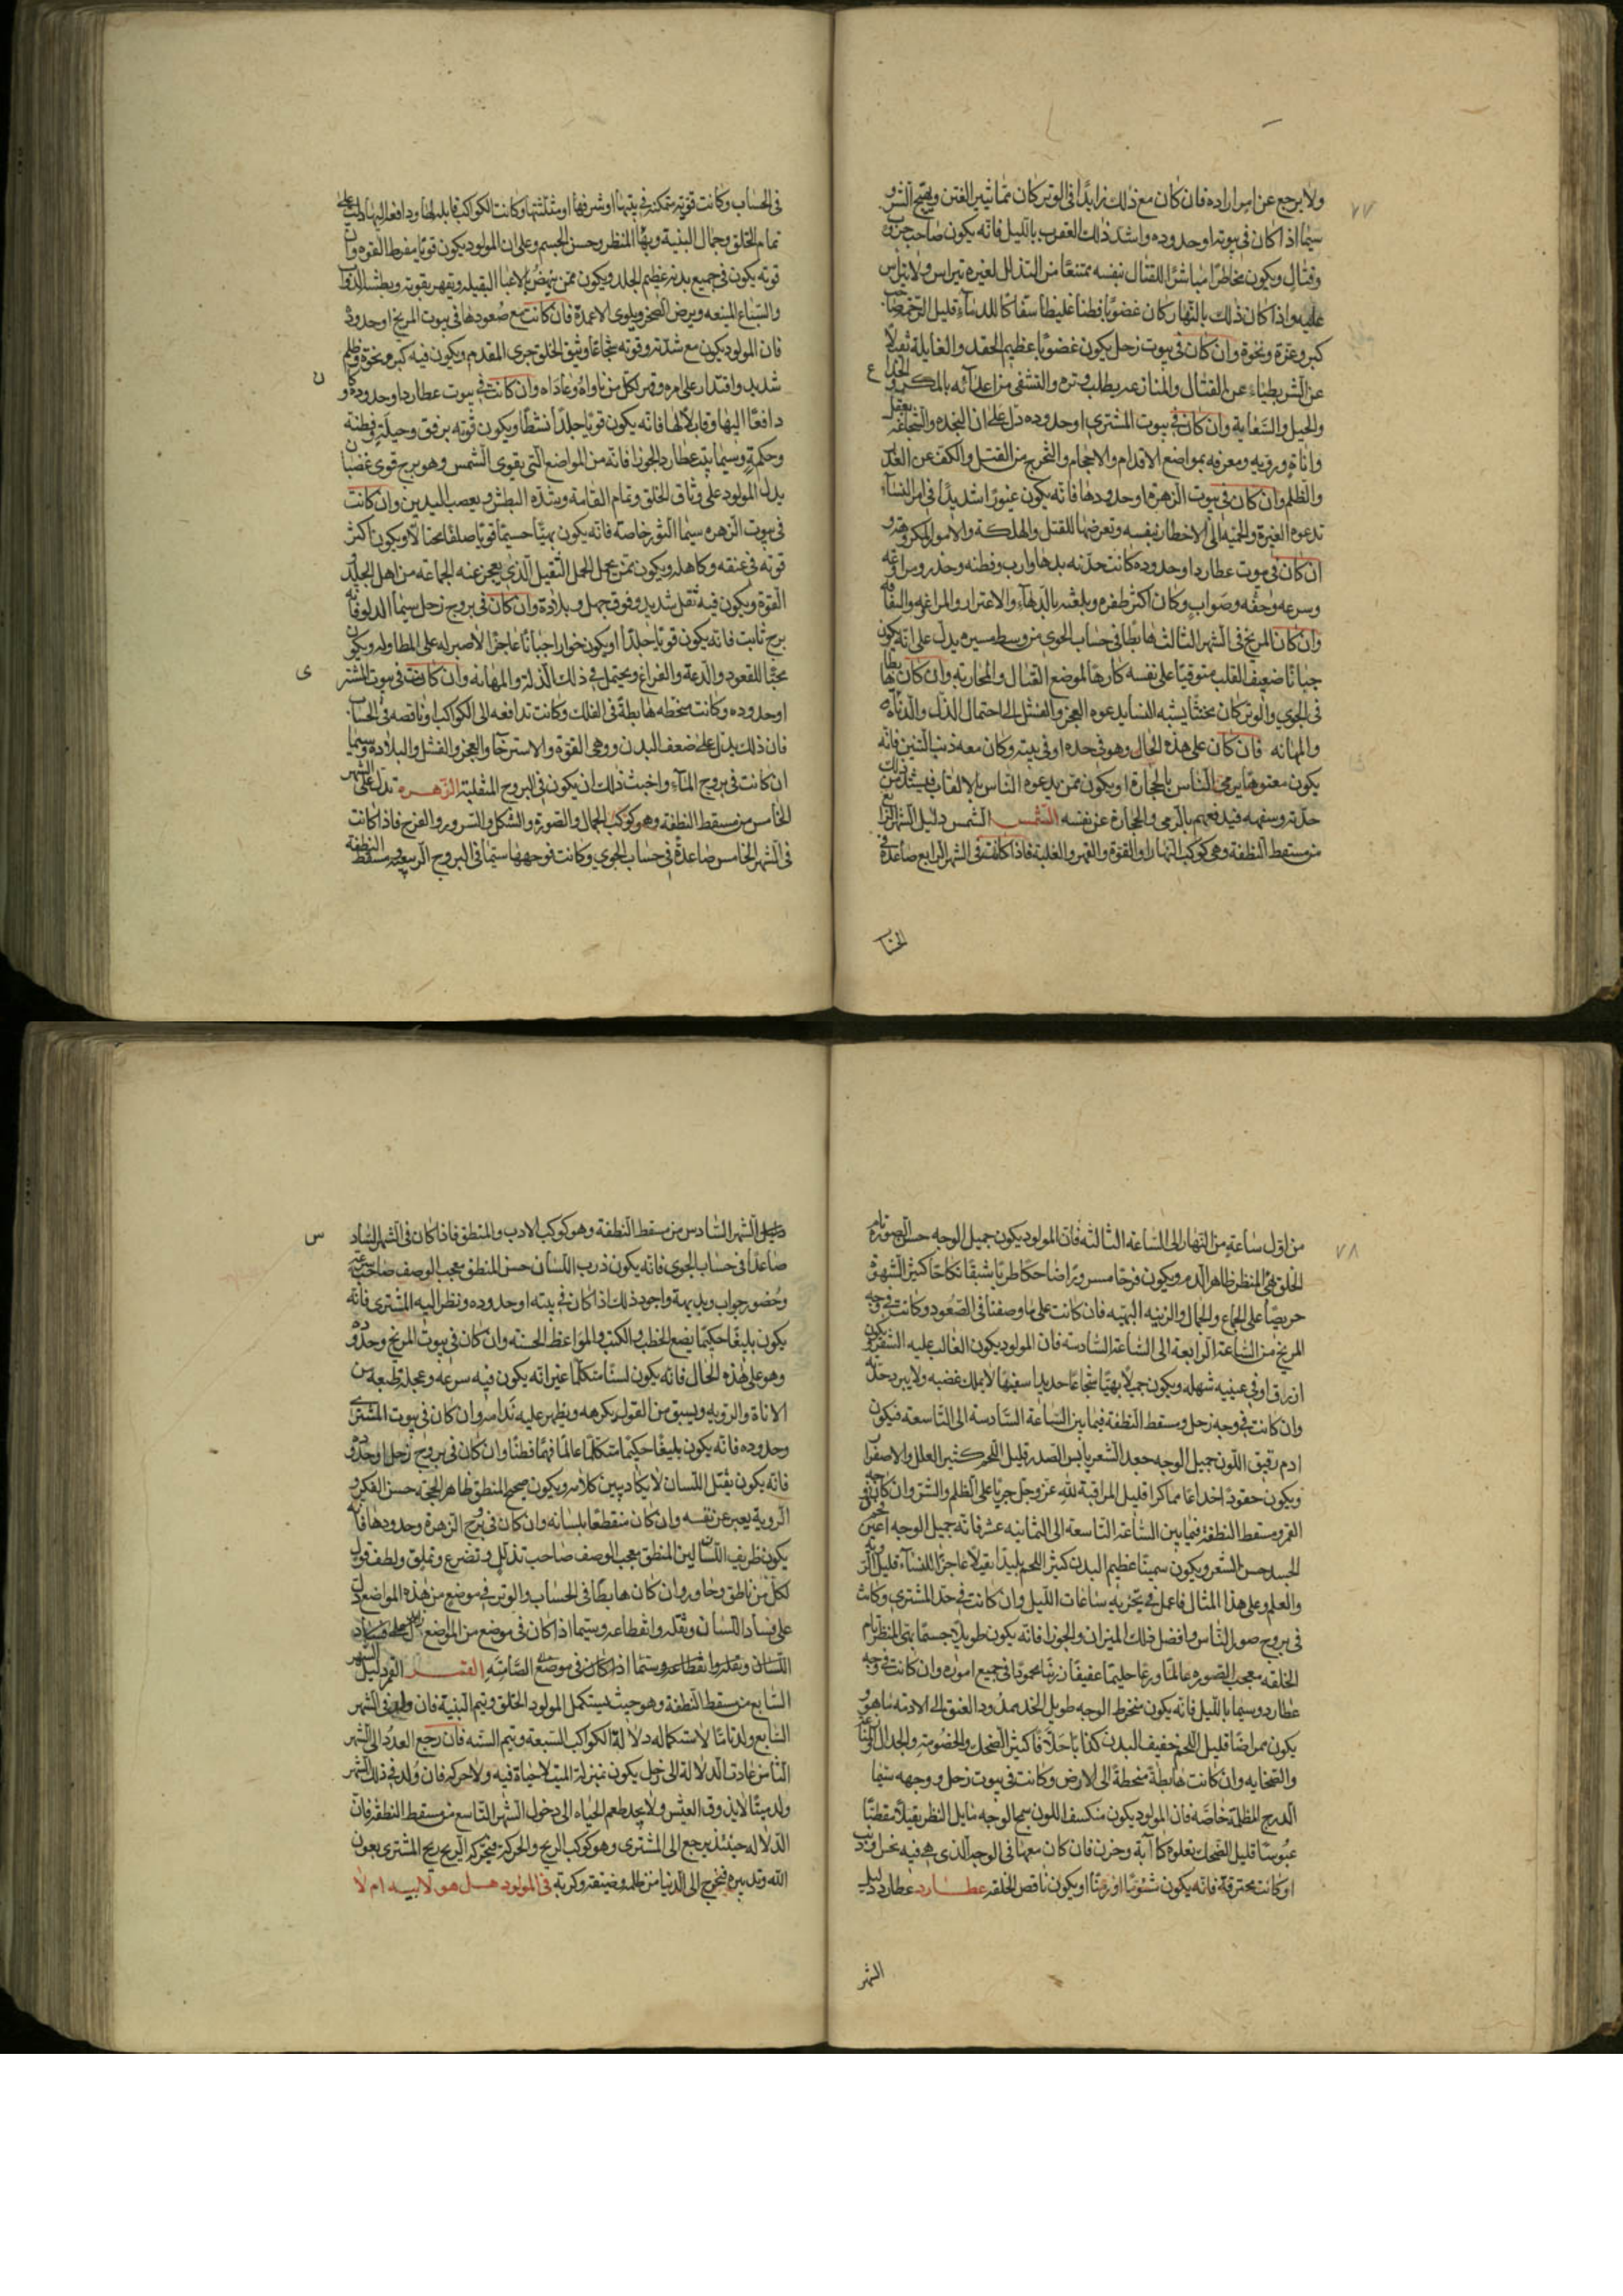 ٧٧
ولا يرجع عن امر اراده فان كان مع ذلك زايدًا فى الوتر كان مما يثير الفتن ويهيج الشر و
سيما اذا كان فى بيوته او حدوده واشد ذلك العقرب بالليل فانه يكون صاحب حرب
وقتال ويكون مخاطرًا مباشرًا للقتال بنفسه ممتنعًا من التذلل لغيره يتراس ولا يتراس
عليه واذا كان ذلك بالنهار كان غضوبًا فطنا غليظا سفاكا للدماء قليل الرحمة صاحب
كبر وعزة ونخوة وان كان فى بيوت زحل يكون غضوبًا عظيم الحقد والغايلة ثقيلًا
عن الشر بطيئا عن القتال والمنازعه يطلب وتره والتشفى من اعدآئه بالمكر و الخداع
والحيل والسعاية وان كان فى بيوت المشترى او حدوده دل على ان النجده والشجاعة بعقل
واناة ورويه ومعرفه بمواضع الاقدام والاحجام والتحرج من القتل والكف عن الغدر
والظلم وان كان فى بيوت الزهرة او حدودها فانه يكون غيورًا شديدًا فى امر النسآء
تدعوه الغيرة والحميه الى الاخطار بنفسه وتعرضها للقتل والهلكة والامور المكروهة و
ان كان فى بيوت عطارد او حدوده كانت حدته بدها وارب وفطنه وحذر ومراوغه
وسرعه وخفه وصواب وكان اكثر ظفره وبلغته بالدهآء والاغترار والمراغه
وان كان المريخ فى الشهر الثالث هابطًا فى حساب الجوى من وسط مسيره يدل على انه يكون
جبانًا ضعيف القلب متوقيًا على نفسه كارهًا لموضع القتال والمحاربه وان كان هابطا
فى الجوى والوتر كان مخنثًا يشبه النسآ يدعوه العجز والفشل الى احتمال الذل والدناءة
والمهانه فان كان على هذه الحال وهو فى حده او فى بيته وكان معه ذنب التنين فانه
يكون معتوهًا يرمى الناس بالحجارة او يكون ممن يدعوه الناس بالالقاب فيشتد من ذلك
حدته وسفهه فيدفعهم بالرمى والحجارة عن نفسه الشمس الشمس دليل الشهر الرابع
من مسقط النطفه وهى كوكب النهار والقوة والقهر والغلبة فاذا كانت فى الشهر الرابع صاعدة فى
الحساب
فى الحساب وكانت قوية متمكنة فى بيتها او شرفها او مثلثتها وكانت الكواكب قابلة لها ودافعة اليها دلت على
تمام الخلق وجمال البنية وبهآ المنظر وحسن الجسم وعلى ان المولود يكون قويًا مفرط القوه وان
قوته يكون فى جميع بدنه عظيم الجلد ويكون ممن ينهض بالاعبآ الثقيله ويقهر بقوته وبطشه الدواب
والسباع المنيعه ويرض الصخر ويلوى الاعمدة فان كانت مع صعودها فى بيوت المريخ او حدوده
فان المولود يكون مع شدته وقوته شجاعًا وثيق الخلق جرى المقدم ويكون فيه كبر ونخوة وظلم
شديد واقتدار على امره وقهر لكل من ناواهُ وعاداه وان كانت فى بيوت عطارد او حدوده و كان
دافعًا اليها وقابلًا لها فانه يكون قويًا جلدًا نشطًا ويكون قوته برفق وحيلة وفطنه
وحكمة وسيما بيت عطارد الجوزا فانه من المواضع التى يقوى الشمس وهو برج قوى
يدل المولود على وثاق الخلق وتمام القامة وشدة البطش وبعصب اليدين وان كانت
فى بيوت الزهره سيما الثور خاصة فانه يكون بهيًا جسيمًا قويًا صلفًا مختالًا ويكون اكثر
قوته فى عنقه وكاهله ويكون ممن يحمل الحمل الثقيل الذى يعجز عنه الجماعه من اهل الجلد
القوة ويكون فيه ثقل شديد وفوق جهل وبلادة وان كان فى بروج زحل سيما الدلو فانه
برج ثابت فانه يكون قويًا جلدًا او يكون خوارا جبانًا عاجزًا لا صبر له على المطاوله ويكون
محبًا للقعود والدعة والفراغ ويحتمل فى ذلك الذلة والمهانه وان كانت فى بيوت المشترى
او حدوده وكانت منحطه هابطةً فى الفلك وكانت تدافعه الى الكواكب او ناقصه فى الحساب
فان ذلك يدل على ضعف البدن ووهى القوة والاسترخآ والعجز والفشل والبلادة وسيما
ان كانت فى بروج المآء واخبث ذلك ان يكون فى البروج المنقلبة الزهره تدل على الشهر
الخامس من مسقط النطفة وهو كوكب الجمال والصورة والشكل والسرور والفرح فاذا كانت
فى الشهر الخامس صاعدةً فى حساب الجوى وكانت فى وجهها سيما فى البروج الربيعية ومسقط النطفة
٧٨
من اول ساعةٍ من النهار الى الساعه الثالثه فان المولود يكون جميل الوجه حسن الصورة تام
الخلق بهى المنظر ظاهر الدم ويكون فرحًا مسرورًا ضاحكًا طربًا شبقًا نكاحًا كثير الشهوة
حريصًا على الجماع والجمال والزينه البهيه فان كانت على ما وصفنا فى الصعود وكانت فى وجه
المريخ من الساعة الرابعة الى الساعة السادسه فان المولود يكون الغالب عليه الشقرة و يكون
ازرق او فى عينيه شهله ويكون جميلًا بهيًا شجاعًا حديدا سفيهًا لا يملك غضبه ولا يبرد حدته
وان كانت فى وجه زحل ومسقط النطفه فيما بين الساعة السادسة الى التاسعه فيكون
ادم رقيق اللون جميل الوجه جعد الشعر يابس الصدر قليل اللحم كثير العلل والاصفرا
ويكون حقودًا خداعًا مماكرا قليل المراقبة لله عز وجل جريًا على الظلم والشر وان كانت فى وجه
القمر ومسقط النطفة فيما بين الساعة التاسعة الى الثانيه عشر فانه جميل الوجه اعين
الجسد حسن الشعر ويكون سمينًا عظيم البدن كثير اللحم بليدًا ثقيلًا عاجزًا للنسآء قليل
والعلم وعلى هذا المثال فاعمل فى تجزيه ساعات الليل وان كانت فى حد المشترى وكانت
فى بروج صور الناس وافضل ذلك الميزان والجوزا فانه يكون طويلًا جسيمًا بهى المنظر تام
الخلقه معجب الصوره عالمًا ورعًا حليمًا عفيفًا محمودًا فى جميع اموره وان كانت فى وجه
عطارد وسيما بالليل فانه يكون مخروط الوجه طويل الخد ممدود العنق الى الادمه ما هو و
يكون ممراضًا قليل اللحم خفيف البدن كذابًا حلافًا كثير الضحك والخصومة والجدال
والسخايه وان كانت هابطةً منحطةً الى الارض وكانت فى بيوت زحل ووجهه سيما
الدرج المظلمة خاصة فان المولود يكون منكسف اللون سمج الوجه مايل النظر ثقيلًا مقطبًا
عبوسًا قليل الضحك يعلوه كآبة وحزن فان كان معها فى الوجه الذى هى فيه نحس او ذنب
او كانت محترقة فانه يكون مشؤمًا او زمنًا او يكون ناقص الخلقه عطارد عطارد دليل
الشهر
الشهر السادس من مسقط النطفة وهو كوكب الادب والمنطق فاذا كان فى الشهر السادس
صاعدًا فى حساب الجوى فانه يكون ذرب اللسان حسن المنطق معجب الوصف صاحب سرعه
وحضور جواب وبديهة واجود ذلك اذا كان فى بيته او حدوده ونظر اليه المشترى فانه
يكون بليغًا حكيمًا يضع الخطب والكتب والمواعظ الحسنه وان كان فى بيوت المريخ وحدوده
وهو على هذه الحال فانه يكون لسنًا متكلمًا غير انه يكون فيه سرعه وعجله تمنعه من
الاناة والرويه ويسبق من القول يكرهه ويظهر عليه ندامه وان كان فى بيوت المشترى
وحدوده فانه يكون بليغًا حكيمًا متكلمًا عالمًا فهمًا فطنًا وان كان فى بروج زحل او حدوده
فانه يكون ثقيل اللسان لا يكاد يبين كلامه ويكون صحيح المنطق ظاهر الحجة حسن الفكر و
الروية يعبر عن نفسه وان كان منقطعًا بلسانه وان كان فى برج الزهرة وحدودها فانه
يكون ظريف اللسان لين المنطق معجب الوصف صاحب تذلل وتضرع وتملق ولطف قول
لكل من ناطق وحاور وان كان هابطًا فى الحساب والوتر فى موضع من هذه المواضع دل
على فساد اللسان وثقله وانقطاعه وسيما اذا كان فى موضع من المواضع
اللسان وثقله وانقطاعه وسيما اذا كان فى موضع الصامته القمر القمر دليل الشهر
السابع من مسقط النطفة وهو حيث يستكمل المولود الخلق ويتم البنية فان ولد فى الشهر
السابع ولد تامًا لاستكماله دلالة الكواكب السبعة ويتم السنه فان رجع العدد الى الشهر
الثامن عادت الدلالة الى زحل يكون بمنزلة الميت لا حياة فيه ولا حركه فان وُلد فى ذلك الشهر
ولد ميتًا لا يذوق العيش ولا يجد طعم الحياه الى دخول الشهر التاسع من مسقط النطفة فان
الدلاله حينئذ يرجع الى المشترى وهو كوكب الريح والحركة فتحركه الريح ريح المشترى بعون
الله وتدبيره فيخرج الى الدنيا من ظلمه وضيقه وكربة فى المولود هل هو لابيه ام لا